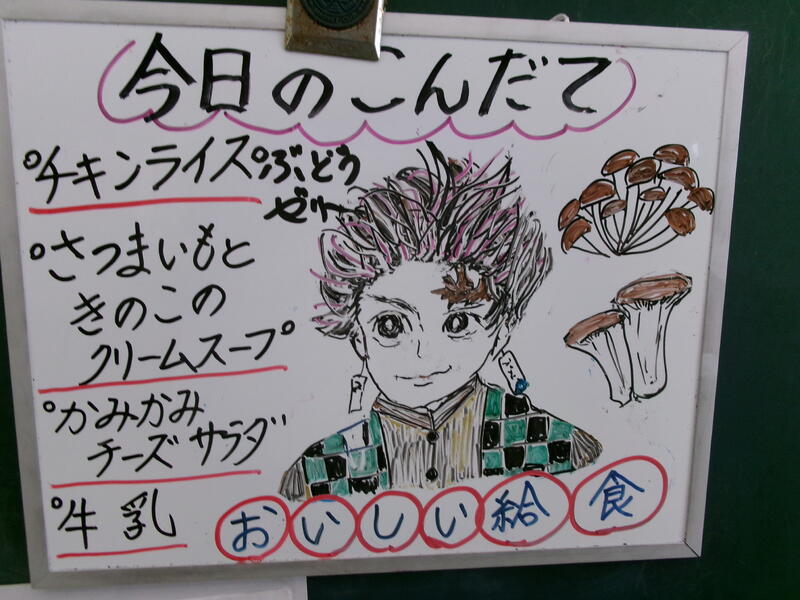 今日のこんだて
°チキンライス
°ぶどう
ゼリー
°さつまいもと
きのこの
クリームスープ°
°かみかみ
チーズサラダ
°牛乳
おいしい給食